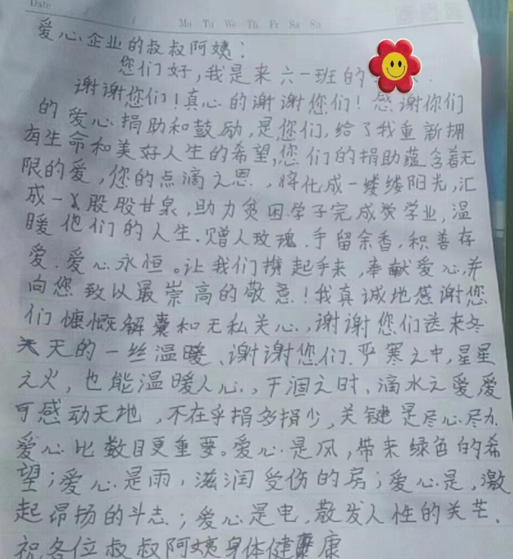 Date
Mo Tu We Th Fr Sa Su
爱心企业的叔叔阿姨：
您们好，我是来六一班的
谢谢您们！真心的谢谢您们！感谢你们
的爱心捐助和鼓励，是您们，给了我重新拥
有生命和美好人生的希望，您们的捐助蕴含着无
限的爱，您的点滴之恩，将化成一缕缕阳光，汇
成一股股甘泉，助力贫困学子完成学业，温
暖他们的人生。赠人玫瑰，手留余香，积善存
爱，爱心永恒。让我们携起手来，奉献爱心，并
向您致以最崇高的敬意！我真诚地感谢您
们慷慨解囊和无私关心，谢谢您们送来冬
天的一丝温暖、谢谢您们、严寒之中，星星
之火，也能温暖人心，干涸之时，滴水之爱，爱
可感动天地，不在乎捐多捐少，关键是尽心尽力
爱心比数目更重要。爱心是风，带来绿色的希
望；爱心是雨，滋润受伤的；爱心是，激
起昂扬的斗志；爱心是电，散发人性的关芒，
祝各位叔叔阿姨身体健康